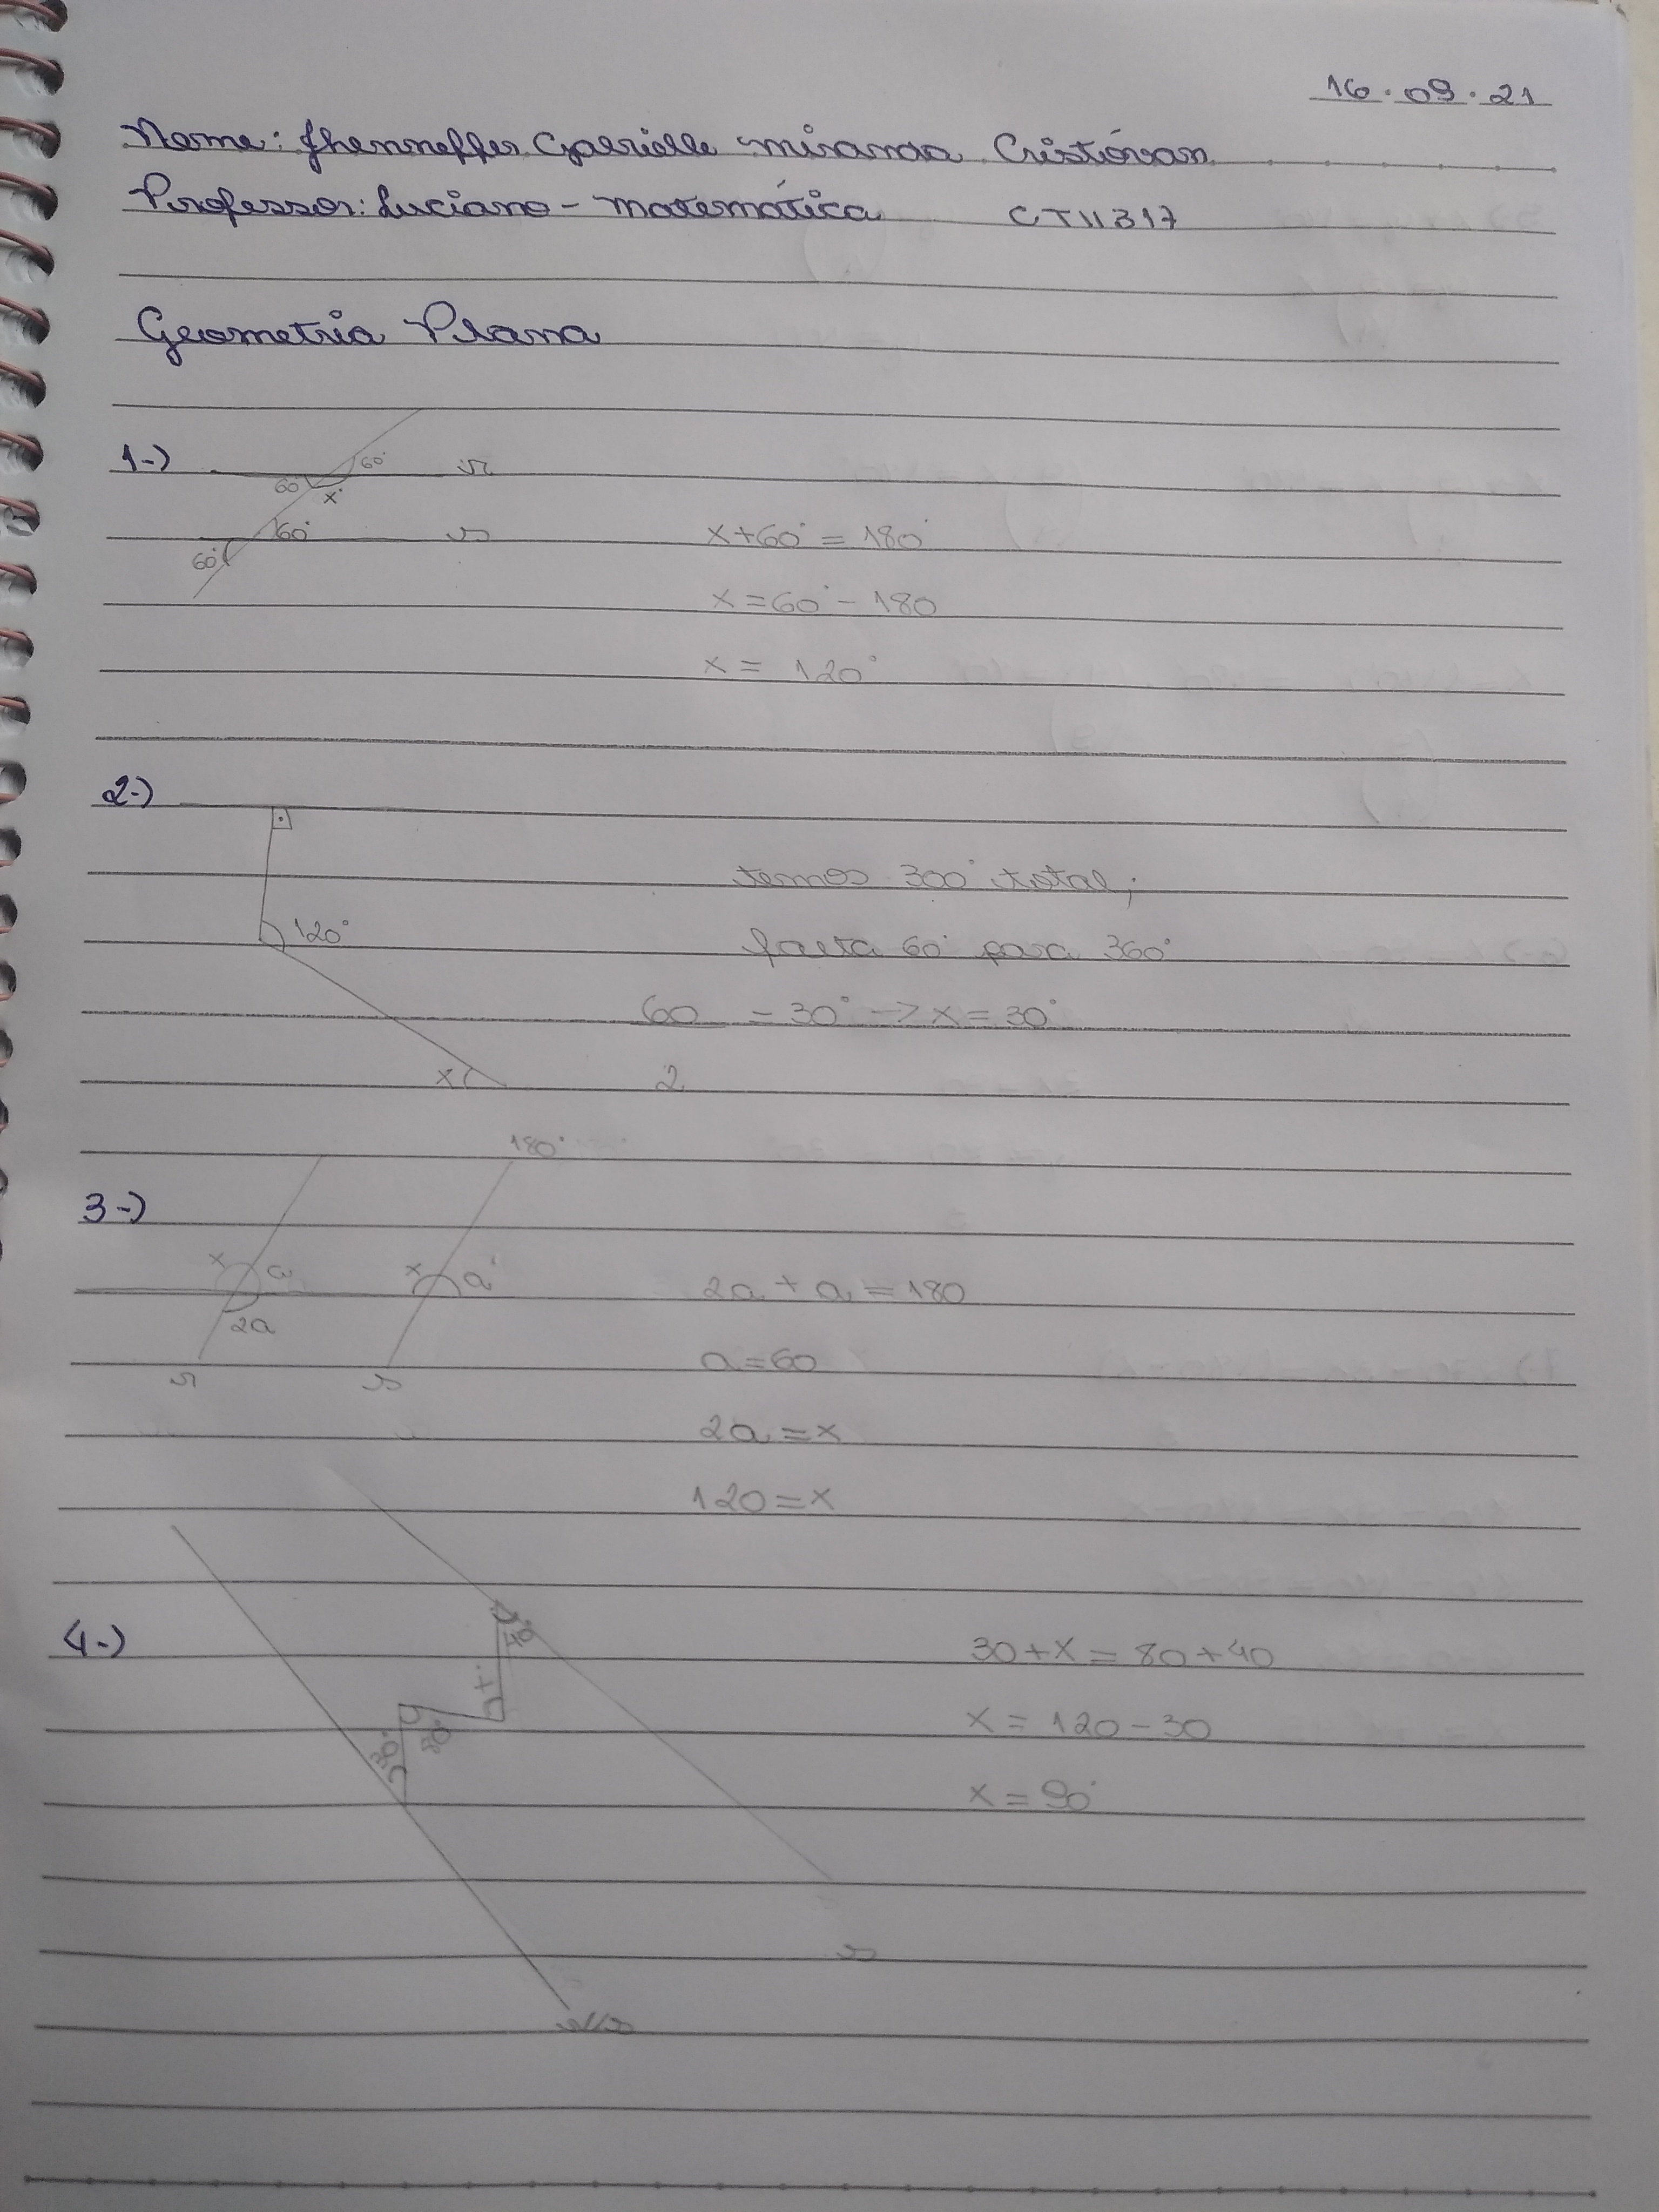 16.09.21
Nome: Jhenneffer Gabrielle Miranda Cristóvan
Professor: Luciano - Matemática CTII 317
Geometria Plana
1-) 60° r
60° x°
60° s x+60° = 180°
60°
x = 60° - 180
x = 120°
2-)
temos 300° total;
120° falta 60° para 360°
60 = 30° -> x = 30°
x 2
180°
3-)
x a x a° 2a + a = 180
2a
a = 60
r s
2a = x
120 = x
4-) 40° 30 + x = 80 + 40
x = 120 - 30
30° 80°
x = 90°
s